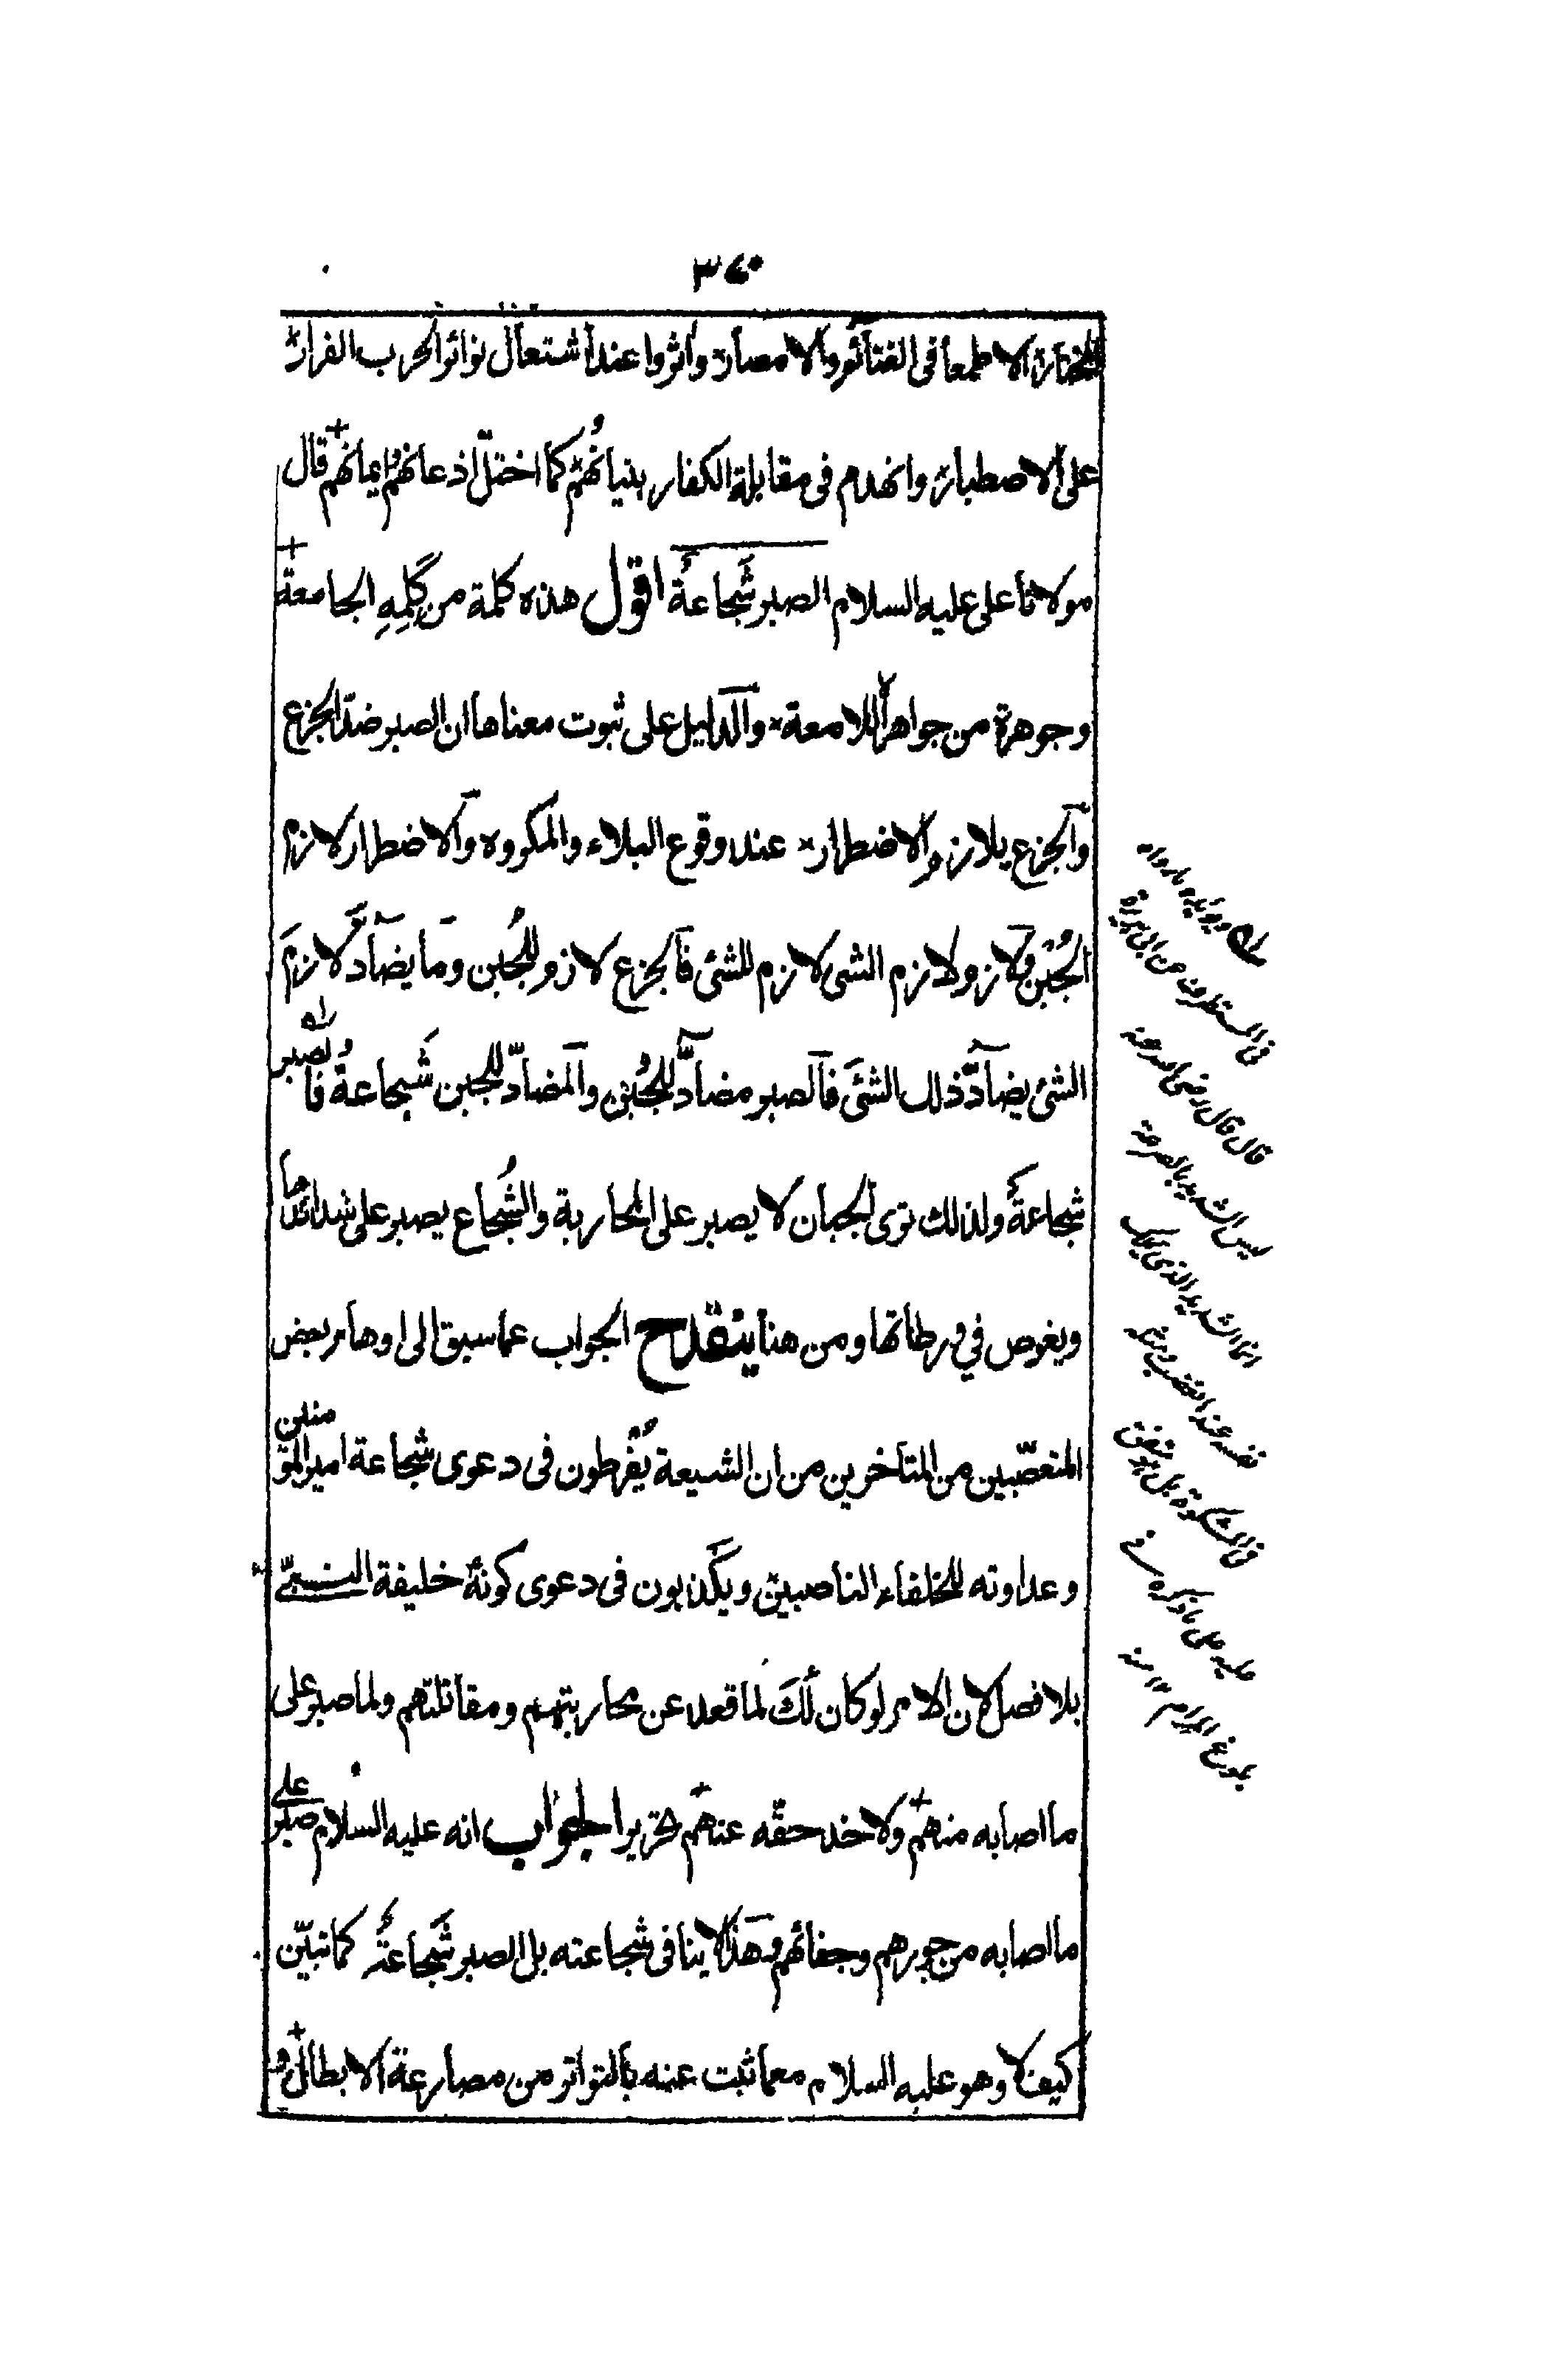 الا طمعا فى الغنآئم والامصار وآثروا عند اشتعال نوائر الحرب الفرار
على الاصطبار وانهدم فى مقابلة الكفار بنيانُهم كما اختلّ اذعانهم وايمانهم قال
مولانا على عليه السلام الصبر شَجاعَة اقول هذه كلمة من كَلِمِهِ الجامعة
وجوهرة من جواهره اللامعة والدليل على ثبوت معناها ان الصبر ضدّ الجزع
والجزع يلازم الاضطرار عند وقوع البلاء والمكروه والاضطرار لازم
الجُبْن ولازم لازم الشى لازم للشئ فالجزع لازم للجُبن وما يضآدّ لازم
الشئ يضآدّ ذلك الشئ فالصبر مضآدّ للجُبن والمضآدّ للجبن شَجاعةُ فالصبر
شجاعة ولذلك ترى الجبان لا يصبر على المحاربة والشُجاع يصبر على شدائدها
ويغوص في ورطاتها ومن هنا ينقدح الجواب عما سبق الى اوهام بعض
المتعصّبين من المتأخرين من ان الشيعة يُفْرطون فى دعوى شجاعة امير المؤمنين
وعداوته للخلفاء الناصبين ويكذبون فى دعوى كونه خليفة النبىّ
بلا فصل لان الامر لو كان كذلك لما قعد عن محاربتهم ومقاتلتهم ولما صبر على
ما اصابه منهم ولاخذ حقّه عنهم تحرير الجواب انه عليه السلام صبر على
ما اصابه من جورهم وجفائهم وهذا لا ينافى شجاعته بل الصبر شَجاعة كما تبيّن
كيف لا وهو عليه السلام مع ما ثبت عنه بالتواتر من مصارعة الابطال و
ويؤيده ما رواه
فى المستطرف عن ابى هريرة
قال قال رضى الله عنه
ليس الشديد بالصرعة
انما الشديد الذى يملك
نفسه عند الغضب